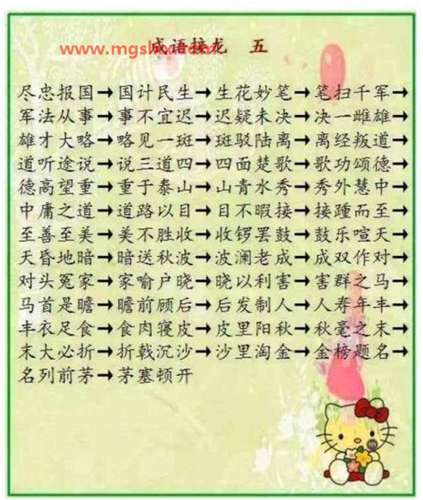 成语接龙 五
www.mgsl
尽忠报国→国计民生→生花妙笔→笔扫千军→
军法从事→事不宜迟→迟疑未决→决一雌雄→
雄才大略→略见一斑→斑驳陆离→离经叛道→
道听途说→说三道四→四面楚歌→歌功颂德→
德高望重→重于泰山→山青水秀→秀外慧中→
中庸之道→道路以目→目不暇接→接踵而至→
至善至美→美不胜收→收锣罢鼓→鼓乐喧天→
天昏地暗→暗送秋波→波澜老成→成双作对→
对头冤家→家喻户晓→晓以利害→害群之马→
马首是瞻→瞻前顾后→后发制人→人寿年丰→
丰衣足食→食肉寝皮→皮里阳秋→秋毫之末→
末大必折→折戟沉沙→沙里淘金→金榜题名→
名列前茅→茅塞顿开